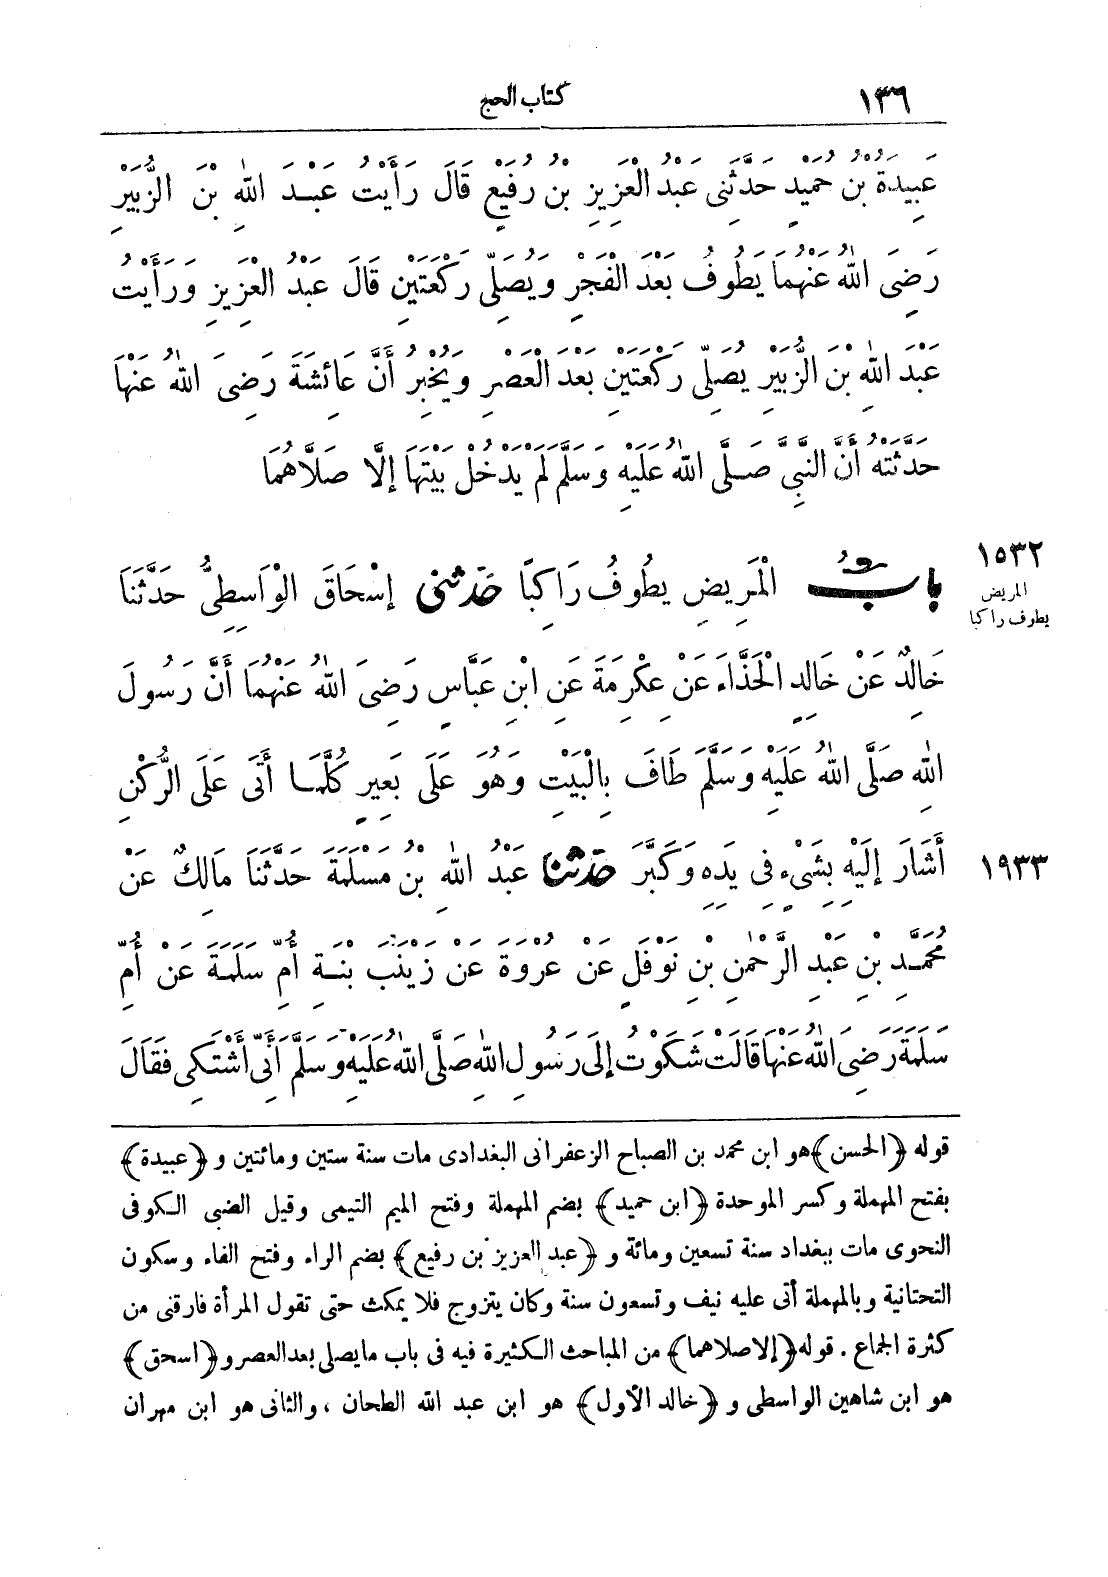 ١٣٦ كتاب الحج
عَبِيدَةُ بْنُ حُمَيْدٍ حَدَّثَنِى عَبْدُ الْعَزِيزِ بْنُ رُفَيْعٍ قَالَ رَأَيْتُ عَبْدَ اللّٰهِ بْنَ الزُّبَيْرِ
رَضِىَ اللّٰهُ عَنْهُمَا يَطُوفُ بَعْدَ الْفَجْرِ وَيُصَلِّى رَكْعَتَيْنِ قَالَ عَبْدُ الْعَزِيزِ وَرَأَيْتُ
عَبْدَ اللّٰهِ بْنَ الزُّبَيْرِ يُصَلِّى رَكْعَتَيْنِ بَعْدَ الْعَصْرِ وَيُخْبِرُ أَنَّ عَائِشَةَ رَضِىَ اللّٰهُ عَنْهَا
حَدَّثَتْهُ أَنَّ النَّبِىَّ صَلَّى اللّٰهُ عَلَيْهِ وَسَلَّمَ لَمْ يَدْخُلْ بَيْتَهَا إِلَّا صَلَّاهُمَا
١٥٣٢
المريض
يطوف راكبا
بابُ الْمَرِيضِ يَطُوفُ رَاكِبًا حَدَّثَنِى إِسْحَاقُ الْوَاسِطِىُّ حَدَّثَنَا
خَالِدٌ عَنْ خَالِدٍ الْحَذَّاءِ عَنْ عِكْرِمَةَ عَنِ ابْنِ عَبَّاسٍ رَضِىَ اللّٰهُ عَنْهُمَا أَنَّ رَسُولَ
اللّٰهِ صَلَّى اللّٰهُ عَلَيْهِ وَسَلَّمَ طَافَ بِالْبَيْتِ وَهُوَ عَلَى بَعِيرٍ كُلَّمَا أَتَى عَلَى الرُّكْنِ
١٩٣٣ أَشَارَ إِلَيْهِ بِشَىْءٍ فِى يَدِهِ وَكَبَّرَ حَدَّثَنَا عَبْدُ اللّٰهِ بْنُ مَسْلَمَةَ حَدَّثَنَا مَالِكٌ عَنْ
مُحَمَّدِ بْنِ عَبْدِ الرَّحْمٰنِ بْنِ نَوْفَلٍ عَنْ عُرْوَةَ عَنْ زَيْنَبَ بْنَةِ أُمِّ سَلَمَةَ عَنْ أُمِّ
سَلَمَةَ رَضِىَ اللّٰهُ عَنْهَا قَالَتْ شَكَوْتُ إِلَى رَسُولِ اللّٰهِ صَلَّى اللّٰهُ عَلَيْهِ وَسَلَّمَ أَنِّى أَشْتَكِى فَقَالَ
قوله ﴿الحسن﴾ هو ابن محمد بن الصباح الزعفرانى البغدادى مات سنة ستين ومائتين و ﴿عبيدة﴾
بفتح المهملة وكسر الموحدة ﴿ابن حميد﴾ بضم المهملة وفتح الميم التيمى وقيل الضبى الكوفى
النحوى مات ببغداد سنة تسعين ومائة و ﴿عبد العزيز بن رفيع﴾ بضم الراء وفتح الفاء وسكون
التحتانية وبالمهملة أتى عليه نيف وتسعون سنة وكان يتزوج فلا يمكث حتى تقول المرأة فارقنى من
كثرة الجماع . قوله ﴿إلا صلاهما﴾ من المباحث الكثيرة فيه فى باب ما يصلى بعد العصر و ﴿اسحق﴾
هو ابن شاهين الواسطى و ﴿خالد الأول﴾ هو ابن عبد الله الطحان ، والثانى هو ابن مهران